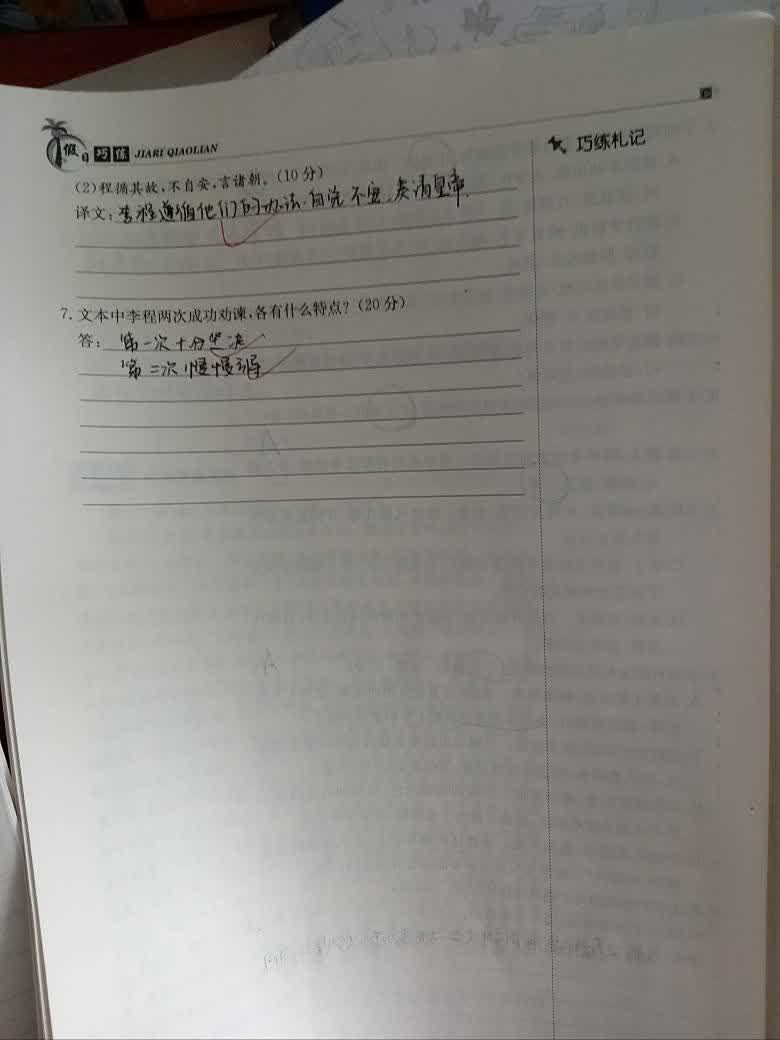 假日巧练 JIARI QIAOLIAN
巧练札记
(2)程循其故,不自安,言诸朝。(10分)
译文:李程遵循他们的办法.自觉不安,
7. 文本中李程两次成功劝谏,各有什么特点?(20分)
答:第一次十分坚决
第二次慢慢引导